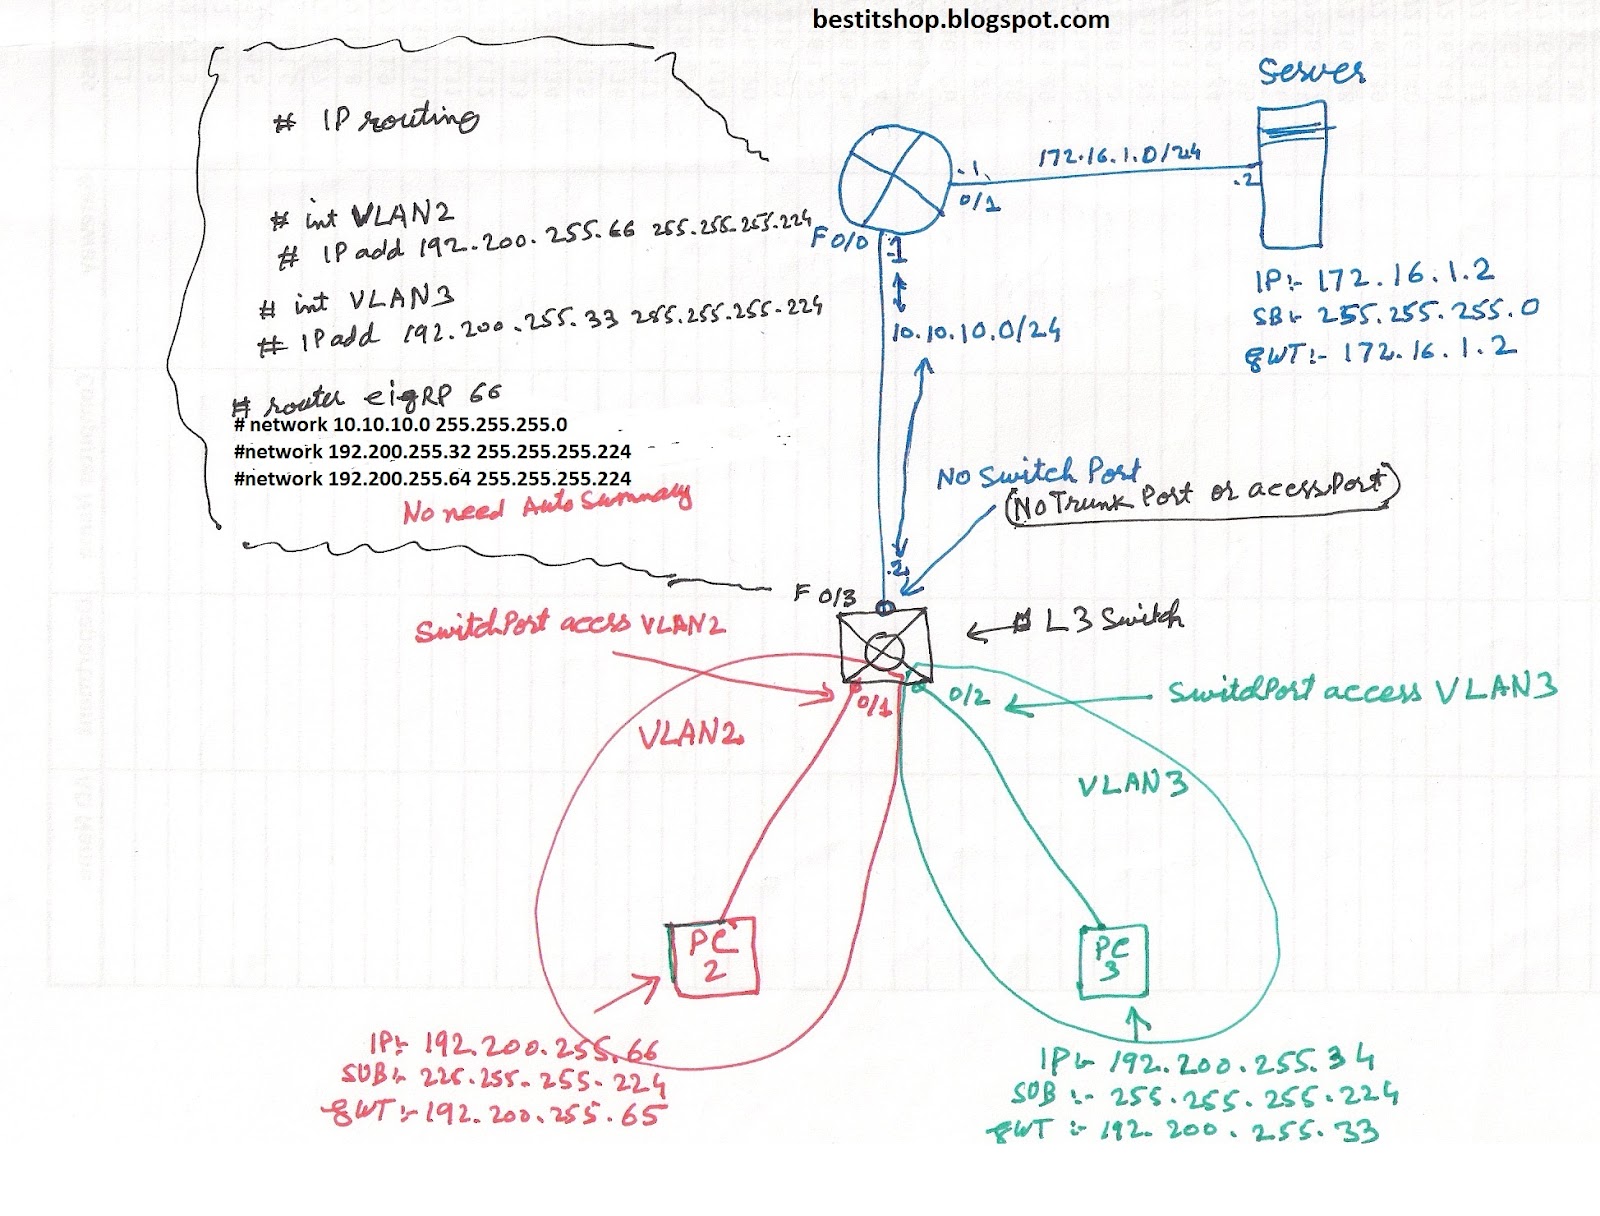 bestitshop.blogspot.com
# IP routing
# int VLAN2
# IP add 192.200.255.66 255.255.255.224
# int VLAN3
# IP add 192.200.255.33 255.255.255.224
# router eigRP 66
# network 10.10.10.0 255.255.255.0
#network 192.200.255.32 255.255.255.224
#network 192.200.255.64 255.255.255.224
No need Auto Summary
Server
172.16.1.0/24
.1
.2
0/1
F 0/0
.1
10.10.10.0/24
IP:- 172.16.1.2
SB:- 255.255.255.0
gWT:- 172.16.1.2
No Switch Port
(No Trunk Port or acess Port)
.2
F 0/3
# L3 Switch
SwitchPort access VLAN2
0/1
0/2
SwitchPort access VLAN3
VLAN2
VLAN3
PC
2
PC
3
IP:- 192.200.255.66
SUB:- 225.255.255.224
gWT:- 192.200.255.65
IP:- 192.200.255.34
SUB:- 255.255.255.224
gWT:- 192.200.255.33